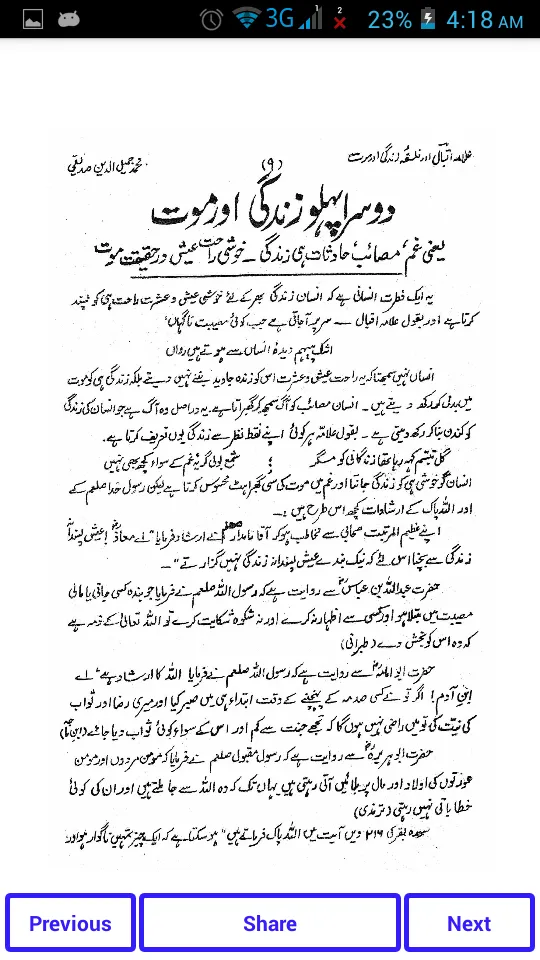 3G 1 2 23% 4:18 AM
علامہ اقبالؒ اور فلسفۂ زندگی اور موت (۹) محمد جمیل الدین صدیقی
دوسرا پہلو زندگی اور موت
یعنی غم، مصائب، حادثات ہی زندگی ۔ خوشی راحت عیش در حقیقت موت
یہ ایک فطرت انسانی ہے کہ انسان زندگی بھر کے لئے خوشی عیش و عشرت راحت ہی کو پسند
کرتا ہے اور بقول علامہ اقبال — سر پر آ جاتی ہے جب کوئی مصیبت ناگہاں،
اشک پیہم دیدۂ انساں سے ہوتے ہیں رواں
انسان نہیں سمجھتا کہ یہ راحت عیش و عشرت اس کو زندہ جاوید بننے نہیں دیتے بلکہ زندگی ہی کو موت
میں بدل کر رکھ دیتے ہیں۔ انسان مصائب کو آگ سمجھ کر گھبراتا ہے۔ یہ دراصل وہ آگ ہے جو انسان کی زندگی
کو کندن بنا کر رکھ دیتی ہے۔ بقول علامہ ہر کوئی اپنے نقطہ نظر سے زندگی یوں تعریف کرتا ہے۔
گل تبسم کہہ رہا تھا زندگانی کو مگر ؛ شمع بولی گریۂ غم کے سواء کچھ بھی نہیں
انسان گو خوشی ہی کو زندگی جانتا اور غم میں موت کی سی گھبراہٹ محسوس کرتا ہے لیکن رسول خدا صلعم کے
اور اللہ پاک کے ارشادات کچھ اس طرح ہیں :۔
اپنے عظیم المرتبت صحابی سے مخاطب ہو کر آقا نامدار صلعم نے ارشاد فرمایا "اے معاذؓ! عیش پسندانہ
زندگی سے بچنا اس لئے کہ نیک بندے عیش پسندانہ زندگی نہیں گزارتے"۔
حضرت عبداللہ بن عباسؓ سے روایت ہے کہ رسول اللہ صلعم نے فرمایا جو بندہ کسی جانی یا مالی
مصیبت میں مبتلا ہو اور کسی سے اظہار نہ کرے اور نہ شکوہ شکایت کرے تو اللہ تعالیٰ کے ذمہ ہے
کہ وہ اس کو بخش دے (طبرانی)
حضرت ابو امامہؓ سے روایت ہے کہ رسول اللہ صلعم نے فرمایا اللہ کا ارشاد ہے "اے
ابن آدم! اگر تو نے کسی صدمہ کے پہنچنے کے وقت ابتداء ہی میں صبر کیا اور میری رضا اور ثواب
کی نیت کی تو میں راضی نہیں ہوں گا کہ تجھے جنت سے کم اور اس کے سواء کوئی ثواب دیا جائے (ابن ماجہ)
حضرت ابو ہریرہؓ سے روایت ہے کہ رسول مقبول صلعم نے فرمایا کہ مومن مردوں اور مومن
عورتوں کی اولاد اور مال پر بلائیں آتی رہتی ہیں یہاں تک کہ وہ اللہ سے جا ملتے ہیں اور ان کی کوئی
خطا باقی نہیں رہتی (ترمذی)
سورہ بقر کی ۲۱۶ ویں آیت میں اللہ پاک فرماتے ہیں "ہو سکتا ہے کہ ایک چیز تمہیں ناگوار ہو اور
Previous Share Next